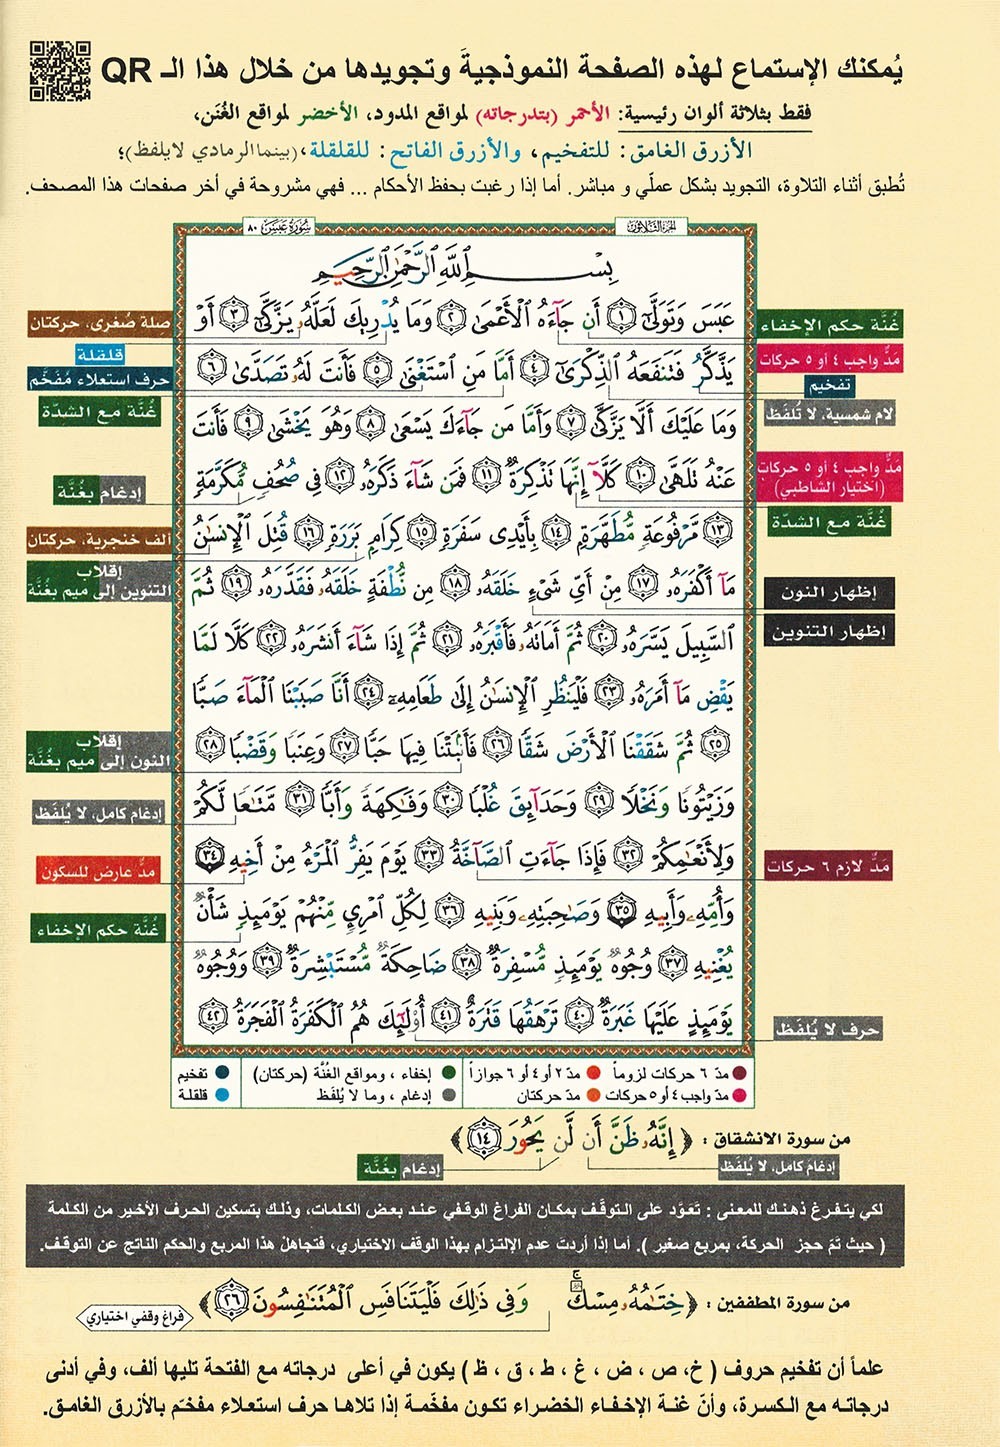 يُمكنك الإستماع لهذه الصفحة النموذجيةَ وتجويدها من خلال هذا الـ QR
فقط بثلاثة ألوان رئيسية: الأحمر (بتدرجاته) لمواقع المدود، الأخضر لمواقع الغُنَن،
الأزرق الغامق: للتفخيم، والأزرق الفاتح: للقلقلة، (بينما الرمادي لايلفظ)؛
تُطبق أثناء التلاوة، التجويد بشكل عملّي و مباشر. أما إذا رغبت بحفظ الأحكام ... فهي مشروحة في أخر صفحات هذا المصحف.
الجزء الثلاثون
سورة عبس ٨٠
بِسْمِ ٱللَّهِ ٱلرَّحْمَٰنِ ٱلرَّحِيمِ
عَبَسَ وَتَوَلَّىٰٓ ١ أَن جَآءَهُ ٱلْأَعْمَىٰ ٢ وَمَا يُدْرِيكَ لَعَلَّهُۥ يَزَّكَّىٰٓ ٣ أَوْ
يَذَّكَّرُ فَتَنفَعَهُ ٱلذِّكْرَىٰٓ ٤ أَمَّا مَنِ ٱسْتَغْنَىٰ ٥ فَأَنتَ لَهُۥ تَصَدَّىٰ ٦
وَمَا عَلَيْكَ أَلَّا يَزَّكَّىٰ ٧ وَأَمَّا مَن جَآءَكَ يَسْعَىٰ ٨ وَهُوَ يَخْشَىٰ ٩ فَأَنتَ
عَنْهُ تَلَهَّىٰ ١٠ كَلَّآ إِنَّهَا تَذْكِرَةٌ ١١ فَمَن شَآءَ ذَكَرَهُۥ ١٢ فِى صُحُفٍ مُّكَرَّمَةٍ
١٣ مَّرْفُوعَةٍ مُّطَهَّرَةٍۭ ١٤ بِأَيْدِى سَفَرَةٍ ١٥ كِرَامٍۭ بَرَرَةٍ ١٦ قُتِلَ ٱلْإِنسَٰنُ
مَآ أَكْفَرَهُۥ ١٧ مِنْ أَىِّ شَىْءٍ خَلَقَهُۥ ١٨ مِن نُّطْفَةٍ خَلَقَهُۥ فَقَدَّرَهُۥ ١٩ ثُمَّ
ٱلسَّبِيلَ يَسَّرَهُۥ ٢٠ ثُمَّ أَمَاتَهُۥ فَأَقْبَرَهُۥ ٢١ ثُمَّ إِذَا شَآءَ أَنشَرَهُۥ ٢٢ كَلَّا لَمَّا
يَقْضِ مَآ أَمَرَهُۥ ٢٣ فَلْيَنظُرِ ٱلْإِنسَٰنُ إِلَىٰ طَعَامِهِۦٓ ٢٤ أَنَّا صَبَبْنَا ٱلْمَآءَ صَبًّا
٢٥ ثُمَّ شَقَقْنَا ٱلْأَرْضَ شَقًّا ٢٦ فَأَنۢبَتْنَا فِيهَا حَبًّا ٢٧ وَعِنَبًا وَقَضْبًا ٢٨
وَزَيْتُونًا وَنَخْلًا ٢٩ وَحَدَآئِقَ غُلْبًا ٣٠ وَفَٰكِهَةً وَأَبًّا ٣١ مَّتَٰعًا لَّكُمْ
وَلِأَنْعَٰمِكُمْ ٣٢ فَإِذَا جَآءَتِ ٱلصَّآخَّةُ ٣٣ يَوْمَ يَفِرُّ ٱلْمَرْءُ مِنْ أَخِيهِ ٣٤
وَأُمِّهِۦ وَأَبِيهِ ٣٥ وَصَٰحِبَتِهِۦ وَبَنِيهِ ٣٦ لِكُلِّ ٱمْرِئٍ مِّنْهُمْ يَوْمَئِذٍ شَأْنٌ
يُغْنِيهِ ٣٧ وُجُوهٌ يَوْمَئِذٍ مُّسْفِرَةٌ ٣٨ ضَاحِكَةٌ مُّسْتَبْشِرَةٌ ٣٩ وَوُجُوهٌ
يَوْمَئِذٍ عَلَيْهَا غَبَرَةٌ ٤٠ تَرْهَقُهَا قَتَرَةٌ ٤١ أُو۟لَٰٓئِكَ هُمُ ٱلْكَفَرَةُ ٱلْفَجَرَةُ ٤٢
غُنَّة حكم الإخفاء
مَدّ واجب ٤ أو ٥ حركات
تفخيم
لام شمسية، لا تُلفَظ
مَدّ واجب ٤ أو ٥ حركات
(اختيار الشاطبي)
غُنَّة مع الشدّة
إظهار النون
إظهار التنوين
مَدّ لازم ٦ حركات
حرف لا يُلفَظ
صِلة صُغرى، حركتان
قلقلة
حرف استعلاء مُفَخَّم
غُنَّة مع الشدّة
إدغام بغُنَّة
ألف خنجرية، حركتان
إقلاب
التنوين إلى ميم بغُنَّة
إقلاب
النون إلى ميم بغُنَّة
إدغام كامل، لا يُلفَظ
مدّ عارض للسكون
غُنَّة حكم الإخفاء
مدّ ٦ حركات لزوماً مدّ ٢ أو ٤ أو ٦ جوازاً إخفاء ، ومواقع الغُنَّة (حركتان) تفخيم
مدّ واجب ٤ أو ٥ حركات مدّ حركتان إدغام ، وما لا يُلفَظ قلقلة
من سورة الانشقاق : ﴿ إِنَّهُۥ ظَنَّ أَن لَّن يَحُورَ ١٤ ﴾
إدغام كامل، لا يُلفَظ
إدغام بغُنَّة
لكي يتفرغ ذهنك للمعنى : تعوّد على التوقَّف بمكان الفراغ الوقفي عند بعض الكلمات، وذلك بتسكين الحرف الأخير من الكلمة
( حيث تَمّ حجز الحركة، بمربع صغير ). أما إذا أردتَ عدم الإلتزام بهذا الوقف الاختياري، فتجاهلْ هذا المربع والحكم الناتج عن التوقف.
من سورة المطففين : ﴿ خِتَٰمُهُۥ مِسْكٌ ۚ وَفِى ذَٰلِكَ فَلْيَتَنَافَسِ ٱلْمُتَنَٰفِسُونَ ٢٦ ﴾
فراغ وقفي اختياري
علماً أن تفخيم حروف ( خ، ص ، ض ، غ ، ط ، ق ، ظ ) يكون في أعلى درجاته مع الفتحة تليها ألف، وفي أدنى
درجاته مع الكسرة، وأنّ غنة الإخفاء الخضراء تكون مفخّمة إذا تلاها حرف استعلاء مفخّم بالأزرق الغامق.